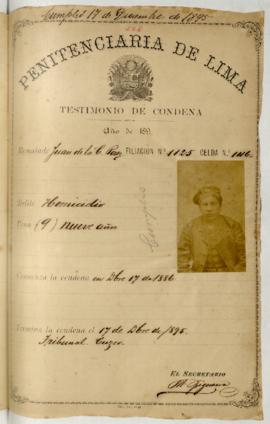 Cumplió 17 de Diciembre de 1895
PENITENCIARIA DE LIMA
TESTIMONIO DE CONDENA
Año de 189
Rematado Juan de la C. FILIACION N.º 1125 CELDA N.º
Delito Homicidio
Pena (9) nueve años
Comienza la condena en Dbre 17 de 1886
Termina la condena el 17 de Dbre de 1895.
Tribunal Cuzco
EL SECRETARIO